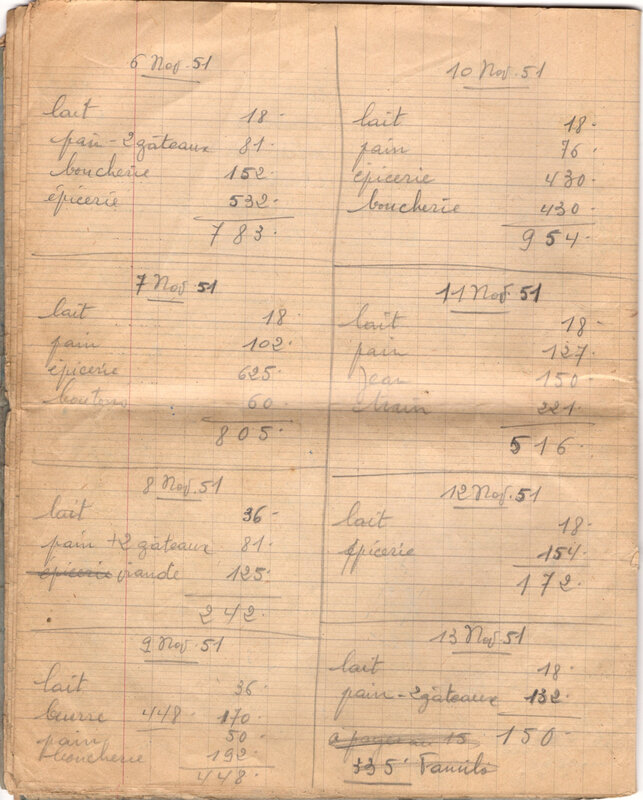 6 Nov. 51
lait 18.
pain - 2 gâteaux 81.
boucherie 152.
épicerie 532.
783.
7 Nov 51
lait 18.
pain 102.
épicerie 625.
boutons 60.
805.
8 Nov. 51
lait 36.
pain + 2 gâteaux 81.
épicerie viande 125.
242.
9 Nov 51
lait 36.
beurre 448 170.
pain 50.
boucherie 192.
448.
10 Nov. 51
lait 18.
pain 76.
épicerie 430.
boucherie 430.
954.
11 Nov 51
lait 18.
pain 127.
Jean 150.
train 221.
516.
12 Nov. 51
lait 18.
épicerie 154.
172.
13 Nov 51
lait 18.
pain - 2 gâteaux 132.
150.
a payer au 15
335